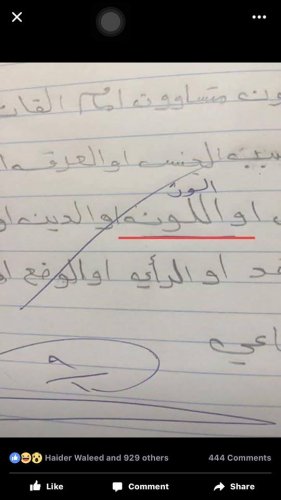 ون متساوون امام القان
سبب الجنس او العرق ا
اللون
او اللون او الدين او
قد او الرأي او الوضع او
اعي
Haider Waleed and 929 others 444 Comments
Like Comment Share